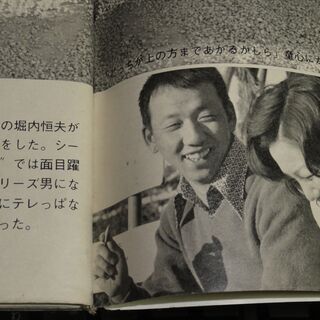 ちが上の方まであがるかしら」童心にか
の堀内恒夫が
をした。シー
〝では面目躍
リーズ男にな
にテレっぱな
った。